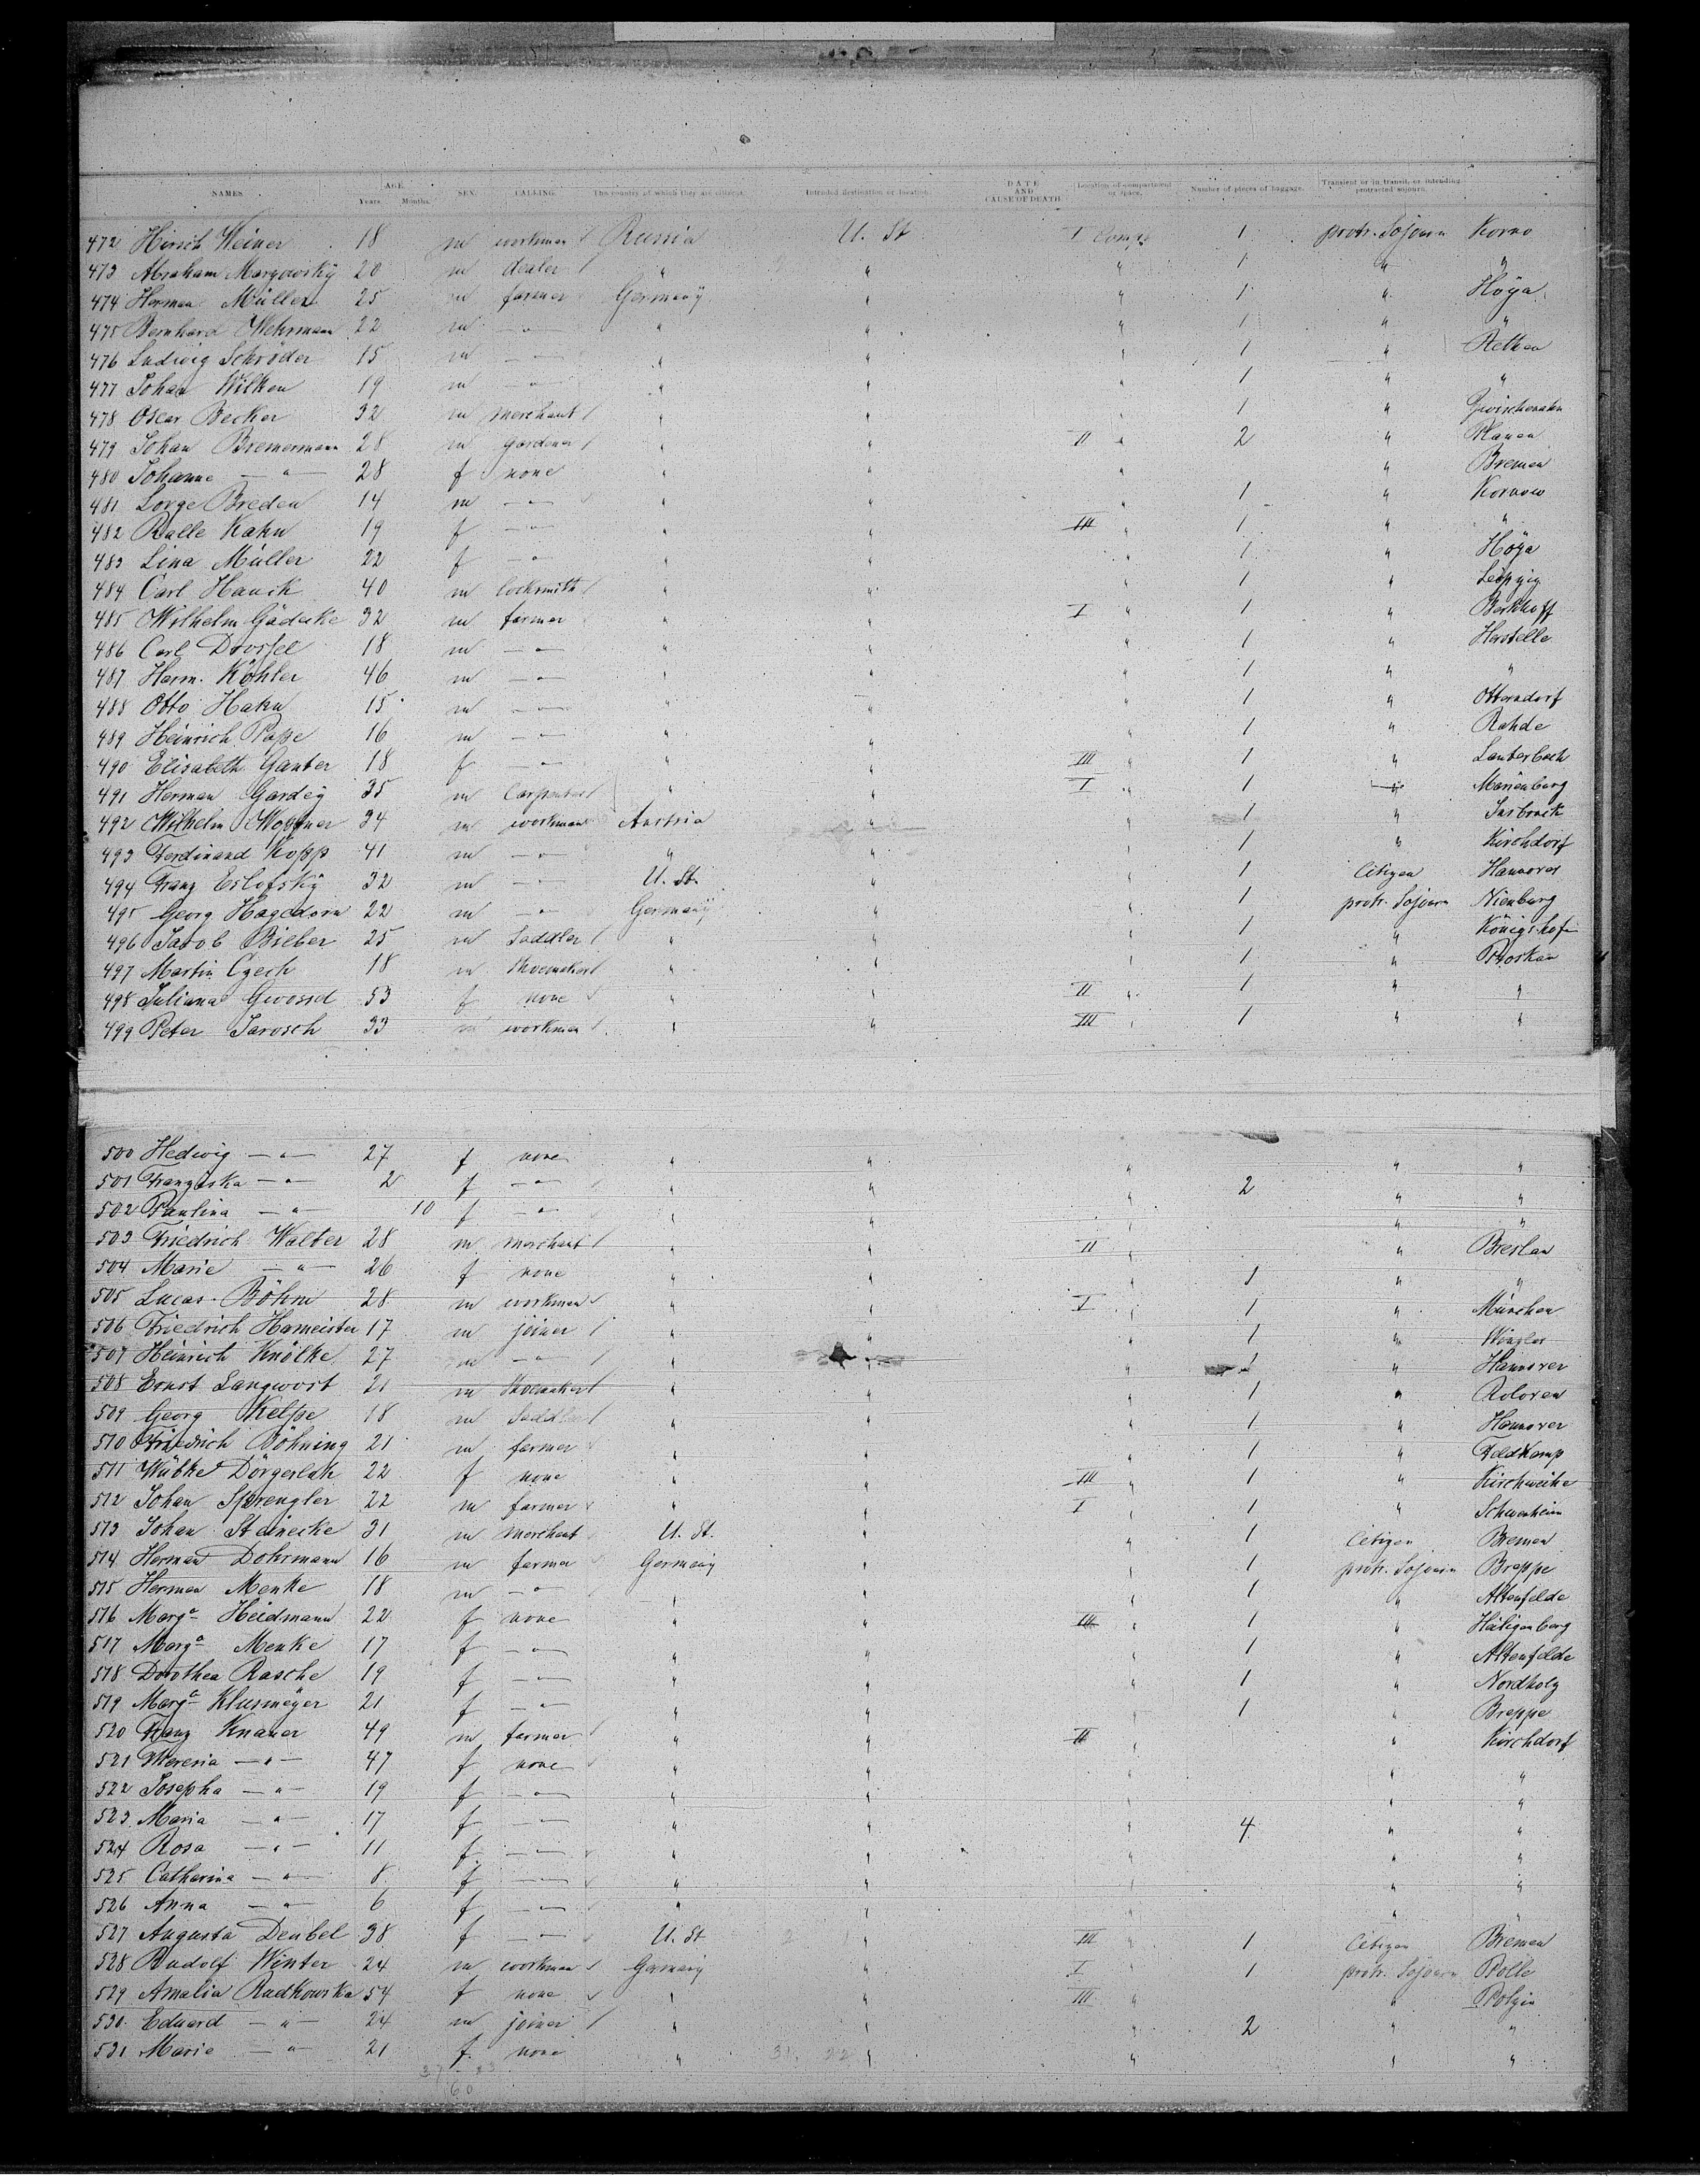 NAMES. AGE. Years. Months. SEX. CALLING. The country of which they are citizens. Intended destination or location. DATE AND CAUSE OF DEATH. Location of compartment or space. Number of pieces of baggage. Transient or in transit, or intending protracted sojourn.
472 Hirsch Weiner 18 m workman Russia U. St I Comp. 1 protr. Sojourn Kovno
473 Abraham Margowsky 20 m dealer " " " 1 " "
474 Herman Müller 25 m farmer Germany " " 1 " Hoya
475 Bernhard Wehrman 22 m -"- " " " 1 " "
476 Ludwig Schröder 15 m -"- " " " 1 " Rethen
477 Johan Wilken 19 m -"- " " " 1 " "
478 Oscar Becker 32 m merchant " " " 1 "
479 Johan Bremermann 28 m gardener " " II " 2 " Plauen
480 Johanne -"- 28 f none " " " " Bremen
481 Breden 14 m -"- " " " 1 " Kornow
482 Ralle Kahn 19 f -"- " " III " 1 " "
483 Lina Müller 22 f -"- " " " 1 " Hoya
484 Carl Hauck 40 m locksmith " " " 1 " Leipzig
485 Wilhelm Gädecke 32 m farmer " " I " 1 " Berkhoff
486 Carl Drossel 18 m -"- " " " 1 " Herstelle
487 Herm. Köhler 46 m -"- " " " 1 " "
488 Otto Hahn 15 m -"- " " " 1 " Otterndorf
489 Heinrich Pape 16 m -"- " " " 1 " Rahde
490 Elisabeth Ganter 18 f -"- " " III " 1 " Lauterbach
491 Herman Gardey 35 m Carpenter " " I " 1 " Marienburg
492 Wilhelm Wopfner 34 m workman Austria " " 1 " Insbruck
493 Ferdinand Kopp 41 m -"- " " " 1 " Kirchdorf
494 Franz Eslofsky 32 m -"- U. St. " " 1 Citizen Hannover
495 Georg Hagedorn 22 m -"- Germany " " 1 protr. Sojourn Nienburg
496 Jacob Bieber 25 m Saddler " " " 1 " Königshofen
497 Martin Czech 18 m Shoemaker " " " 1 " Proskau
498 Juliana Gwossd 53 f none " " II " 1 " "
499 Peter Jarosch 33 m workman " " III " 1 " "
500 Hedwig -"- 27 f none " " " " "
501 Franziska -"- 2 f -"- " " " 2 " "
502 Paulina -"- 10 f -"- " " " " "
503 Friedrich Walter 28 m merchant " " II " " Breslau
504 Marie -"- 26 f none " " " 1 " "
505 Lucas Böhm 28 m workman " " I " 1 " München
506 Friedrich Hameister 17 m joiner " " " 1 "
507 Heinrich Knölke 27 m -"- " " " 1 " Hannover
508 Ernst Langwost 21 m Shoemaker " " " 1 " Roloven
509 Georg Kelpe 18 m Saddler " " " 1 " Hannover
510 Friedrich Böhning 21 m farmer " " " 1 " Feldkamp
511 Wübke Dörgeloh 22 f none " " III " 1 " Kirchweihe
512 Johan Sprengler 22 m farmer " " I " 1 "
513 Johan Steinecke 31 m merchant U. St. " " 1 Citizen Bremen
514 Herman Dohrmann 16 m farmer Germany " " 1 protr. Sojourn Breppe
515 Herman Menke 18 m -"- " " " 1 " Altenfelde
516 Marga Heidmann 22 f none " " III " 1 " Heiligenberg
517 Marga Menke 17 f -"- " " " 1 " Altenfelde
518 Dorothea Rasche 19 f -"- " " " 1 " Nordholz
519 Marga Klusmeyer 21 f -"- " " " 1 " Breppe
520 Franz Knauer 49 m farmer " " II " " Kirchdorf
521 Theresia -"- 47 f none " " " " "
522 Josepha -"- 19 f -"- " " " " "
523 Maria -"- 17 f -"- " " " 4 " "
524 Rosa -"- 11 f -"- " " " " "
525 Catharina -"- 8 f -"- " " " " "
526 Anna -"- 6 f -"- " " " " "
527 Augusta Deubel 38 f -"- U. St " III " 1 Citizen Bremen
528 Rudolf Winter 24 m workman Germany " I " 1 protr. Sojourn Polle
529 Amalia Radkowska 54 f none " " III " " Polzin
530 Eduard -"- 24 m joiner " " " 2 " "
531 Marie -"- 21 f none " " " " "
37 23
60